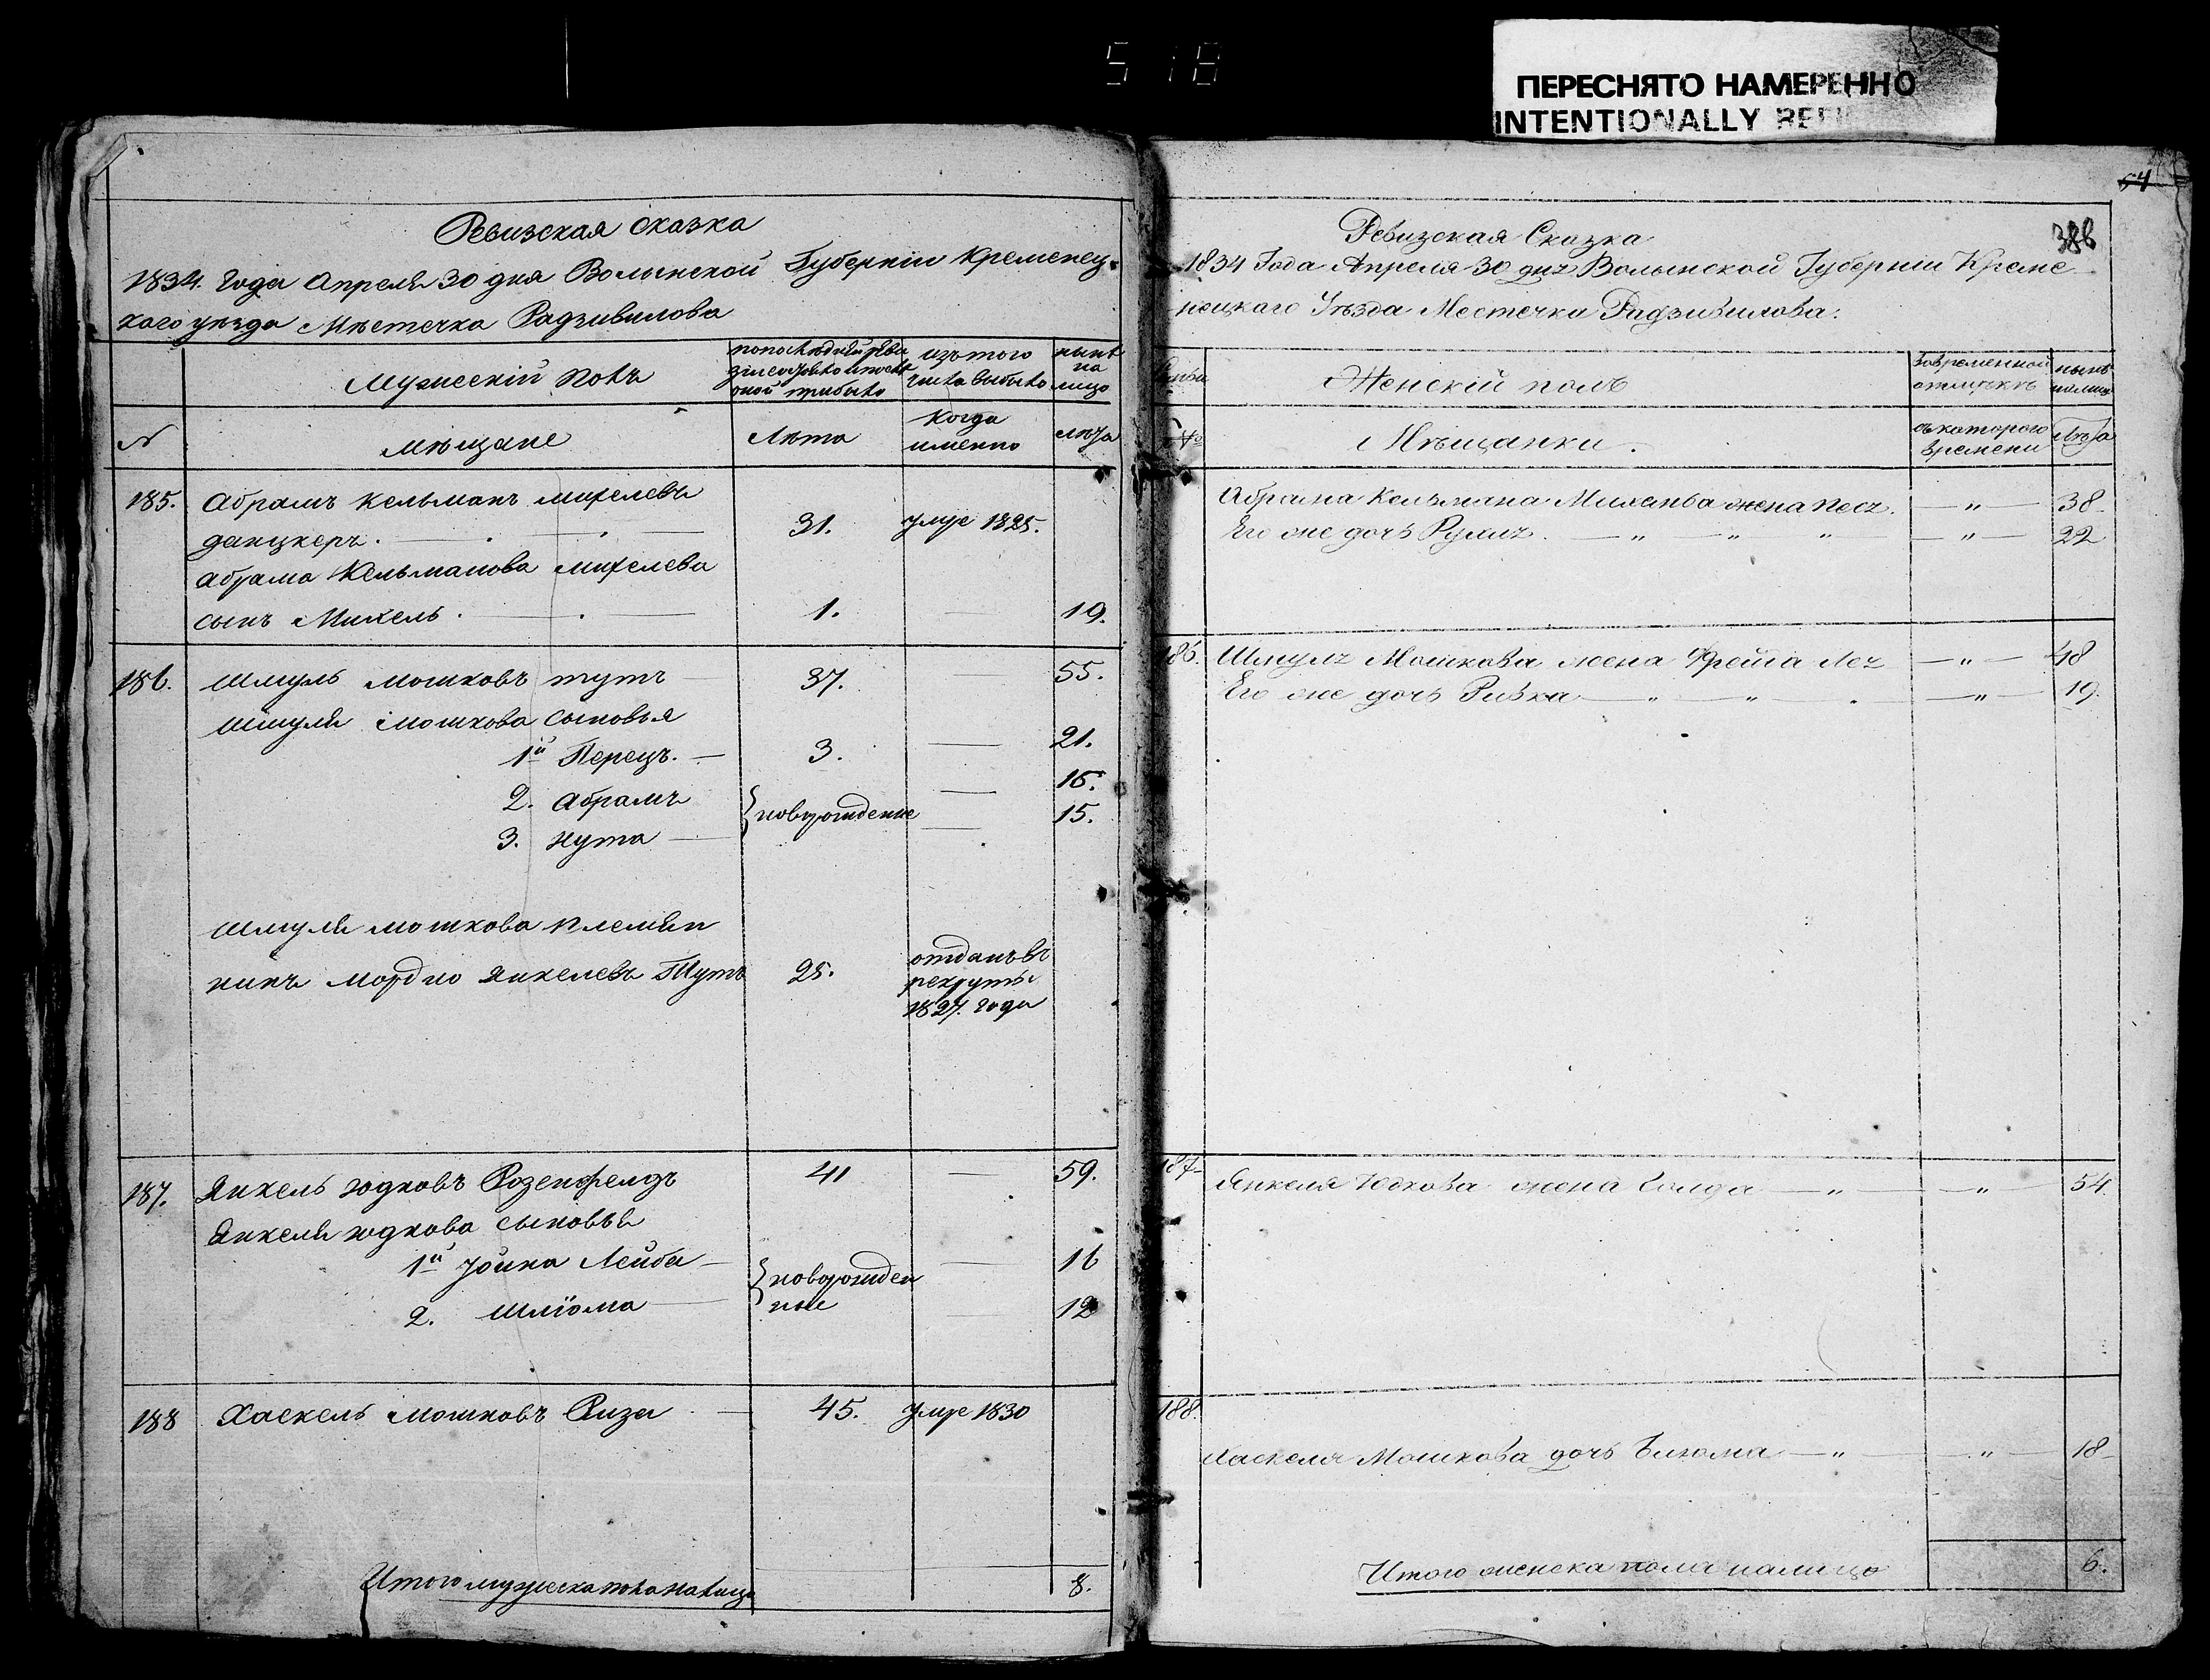 518
ПЕРЕСНЯТО НАМЕРЕННО
INTENTIONALLY
Ревизская сказка
1834. года Апреля 30 дня Волынской Губернiи Кременец.
каго уѣзда Мѣстечка Радзивилова
Мужескiй полъ
по последней реви
зiи состояло и после
оной прибыло
изъ того
числа выбыло
нынѣ
на
лицо
N
мѣщане
Лѣта
Когда
именно
лѣта
185. Абрамъ Кельманъ михелевъ
данцкеръ. 31. умре 1825.
Абрама Кельманова михелева
сынъ Михель. 1. 19.
186. Шмуль мошковъ тутъ 37. 55.
Шмуля мошкова сыновья
1й Перецъ. 3. 21.
2. Абрамъ 16.
новорожденые
3. Нута 15.
Шмуля мошкова племян
никъ Мордко Янкелевъ Тутъ 25. отданъ въ
рекруты
1827. года
187. Янкель юдковъ Розенфелдъ 41 59.
Янкеля юдкова сыновья
1й Йойна Лейба 16
новорожден
ные
2. Шлiома 12
188 Хаскель мошковъ Риза 45. Умре 1830
Итого мужеска пола на лицо 8.
54
386
Ревизская Сказка
1834 Года Апреля 30 дня Волынской Губернiи Креме
нецкаго Уѣзда Местечка Радзивилова.
Женскiй полъ
во временной
отлучкѣ
нынѣ
на лицо
№
Мѣщанки.
съ котораго
времени
Лѣта
Абрама Кельмана Михелева жена Песя. — " — 38.
Его же дочь — " — " — " — " — 22
186. Шмуля Мошкова жена Фрейда Лея — " — 48
Его же дочь Ривка — " — " — . — " — 19.
187 Янкеля Юдкова жена Голда — " — " — 54.
188.
Хаскеля Мошкова дочь Блюма — " — " — 18
Итого женска пола на лицо 6.